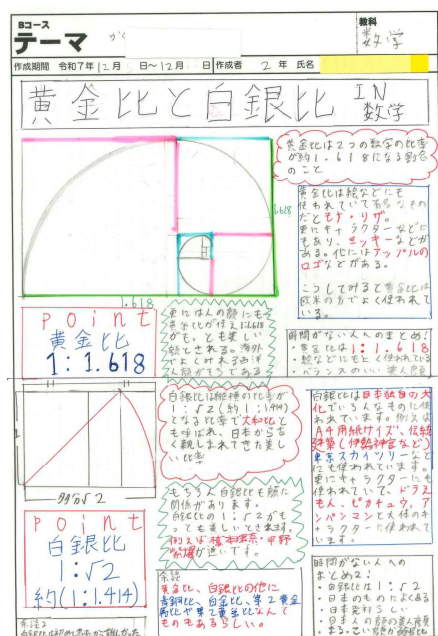 Bコース
テーマ
がく
教科
数学
作成期間 令和7年12月 日～12月 日 作成者 2年 氏名
黄金比と白銀比 IN
数学
黄金比は2つの数字の比率
が約1.618になる割合
のこと
1.618
1.618
黄金比は絵などにも
使われていて有名なもの
だとモナ・リザ。
更にキャラクターなどに
もあり、ミッキーなどが
ある。他にはアップルの
ロゴなどがある。
こうしてみると黄金比は
欧米の方でよく使われて
いる。
point
黄金比
1:1.618
更には人の顔にも
黄金比が使え1:1.618
がも、とも美しい
顔とされる。海外
でよくみれる
人顔がそうである
時間がない人へのまとめ!
・黄金比は1:1.618
・絵などにもよく使われている
・バランスのいい美人顔
白銀比は縦横の比率が
1:√2(約1:1.414)
となる比率で大和比と
も呼ばれ、日本から古
く親しまれてきた美し
い比率
白銀比は日本独自の文
化でいろんなものに使
われています。例えば
A4用紙サイズ、伝統
建築(伊勢神宮など)
東京スカイツリーなど
にも使われています。
更にキャラクターにも
使われていて、ドラえ
もん、ピカチュウ、ア
ンパンマンと人体のキ
ャラクターに使われて
います。
point
白銀比
1:√2
約(1:1.414)
もちろん白銀比も顔に
関係があります。
白銀比の1:√2がも
っとも美しいとされます。
例えば橋本環奈・中野
が近いです。
余談
黄金比、白銀比の他に
青銅比、白金比、第2黄金
比や第2黄金比なんて
ものもあるらしい。
時間がない人への
まとめ2!
・白銀比は1:√2
・日本のものによくある
・日本発祥らしい
・日本人の顔の美人度
余談2